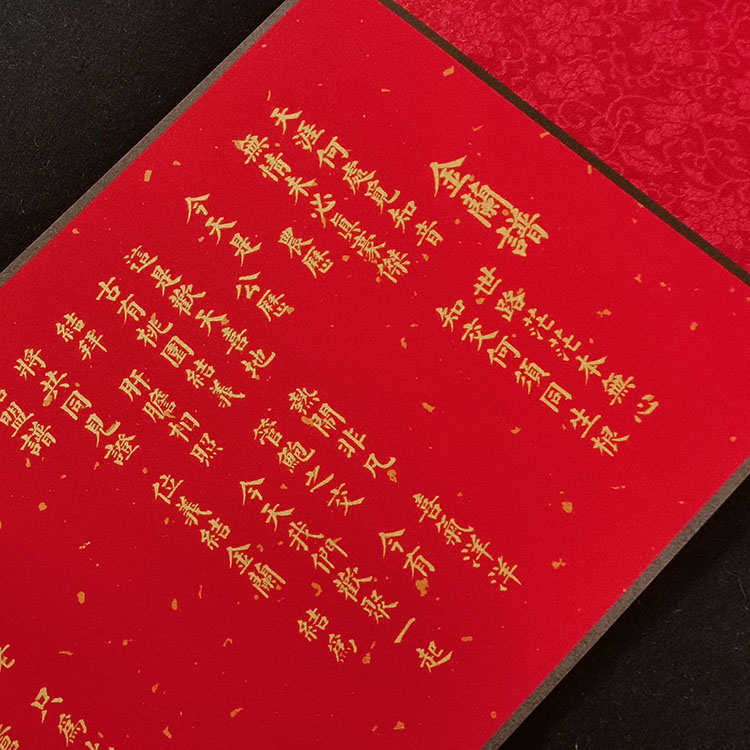 金蘭譜
天涯何處覓知音 世路茫茫本無心
無情未必真豪傑 知交何須同生根
農歷
今天是
公歷
這是歡天喜地 熱鬧非凡 喜氣洋洋
古有桃園結義 管鮑之交 今有
結拜 肝膽相照 今天我們歡聚一起
將共同見證 位義結金蘭 結為
盟譜
只為